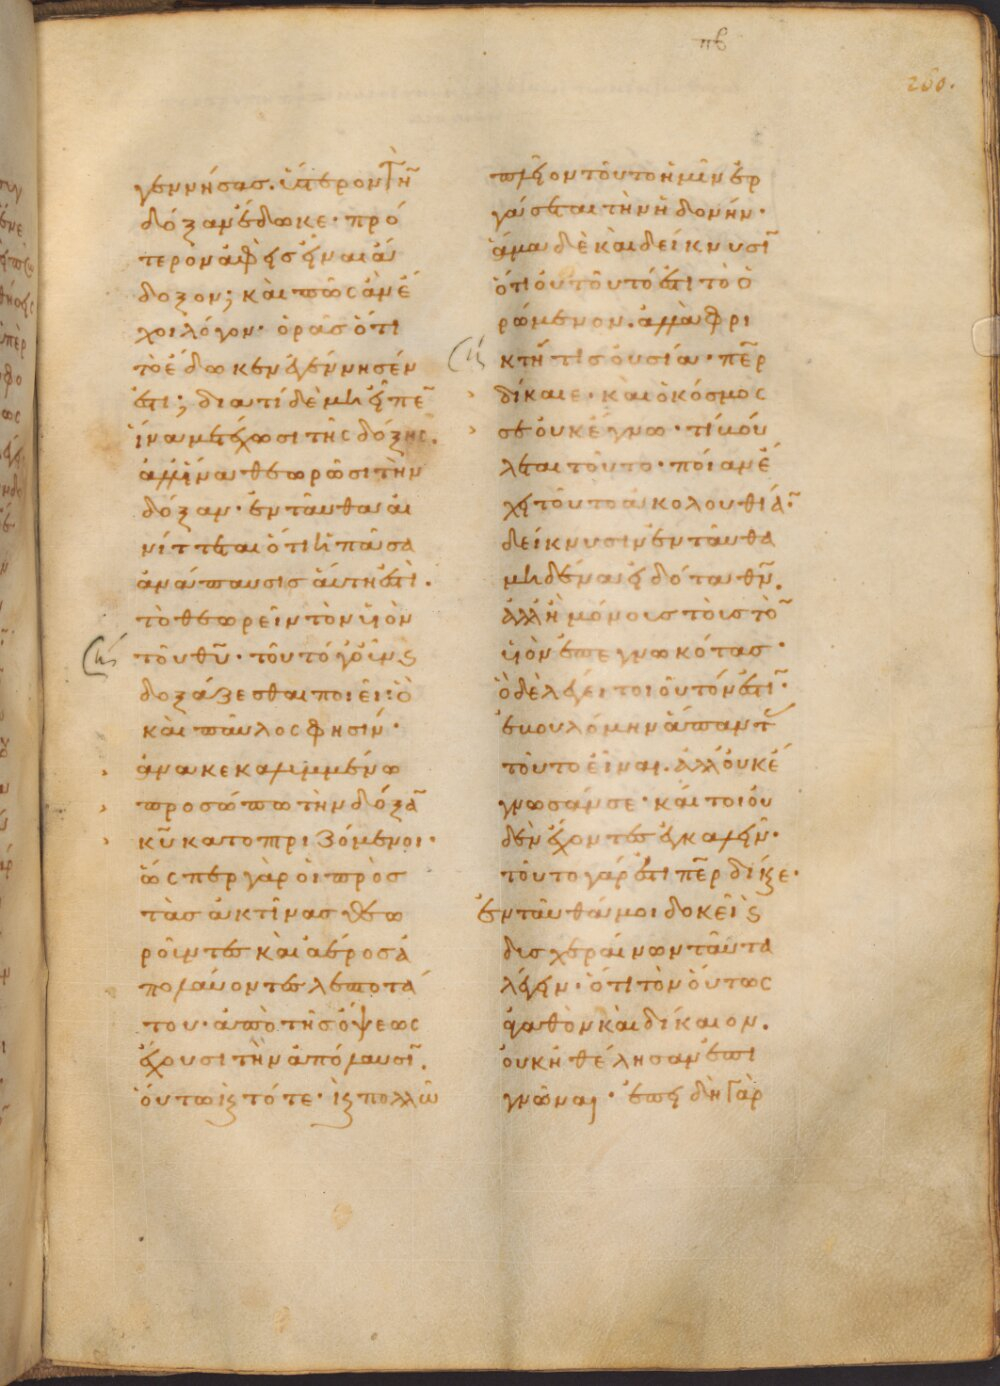 πβ
280.
γεννήσας. ὕστερον τὴν
δόξαν ἔδωκε· πρό
τερον ἀφεὶς εἶναι ἄ
δοξον; καὶ πῶς ἂν ἔ
χοι λόγον· ὁρᾶς ὅτι
τὸ ἔδωκεν ἐγέννησέν
ἐστι; διατί δὲ μὴ εἶπε
ἵνα μετέχωσι τῆς δόξης.
ἀλλ' ἵνα θεωρῶσι τὴν
δόξαν· ἐνταῦθα αἰ
νίττεται ὅτι ἡ πᾶσα
ἀνάπαυσις αὕτη ἐστί.
τὸ θεωρεῖν τὸν υἱὸν
τοῦ θυ· τοῦτο γοῦν καὶ
δοξάζεσθαι ποιεῖ· ὃ
καὶ παῦλος φησίν·
ἀνακεκαλυμμένω
προσώπω τὴν δόξα
κυ κατοπτριζόμενοι·
ὥσπερ γὰρ οἱ πρὸς
τὰς ἀκτῖνας θεω
ροῦντες καὶ ἀέρος ἀ
πολαύοντες λεπτοτά
του· ἀπὸ τῆς ὄψεως
ἔχουσι τὴν ἀπόλαυσι.
οὕτω καὶ τότε· καὶ πολλῶ
πλεῖον τοῦτο ἡμῖν ἐρ
γάσεται τὴν ἡδονήν·
ἅμα δὲ καὶ δείκνυσι
ὅτι οὐ τοῦτό ἐστι τὸ ὁ
ρώμενον. ἀλλὰ φρι
κτή τις οὐσία· περ
δίκαιε· καὶ ὁ κόσμος
σε οὐκ ἔγνω· τί βού
λεται τοῦτο· ποίαν ἔ
χει τοῦτο ἀκολουθία·
δείκνυσιν ἐνταῦθα
μηδένα εἰδότα θν.
ἀλλ' ἢ μόνους τοὺς τὸ
υἱὸν ἐπεγνωκότας·
ὃ δὲ λέγει τοιοῦτόν ἐστι·
ἐβουλόμην ἅπαντ
τοῦτο εἶναι. ἀλλ' οὐκ ἔ
γνωσάν σε· καίτοι οὐ
δὲν ἔχοντες ἐγκαλεῖν·
τοῦτο γάρ ἐστι περ δίκαιε·
ἐνταῦθά μοι δοκεῖ καὶ
δυσχεραίνων ταῦτα
λέγειν· ὅτι τὸν οὕτως
ἀγαθὸν καὶ δίκαιον.
οὐκ ἠθέλησαν ἐπι
γνῶναι· ἐπειδὴ γὰρ